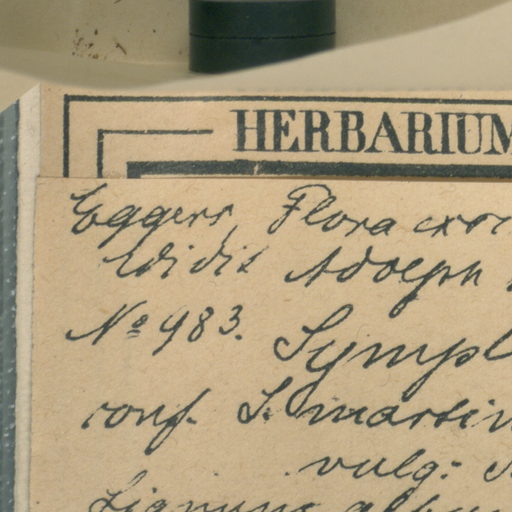 HERBARIUM
Eggers, Flora exo
edidit Adolph
No 983. Sympl
conf. S. martin
vulg: S
Lignum album